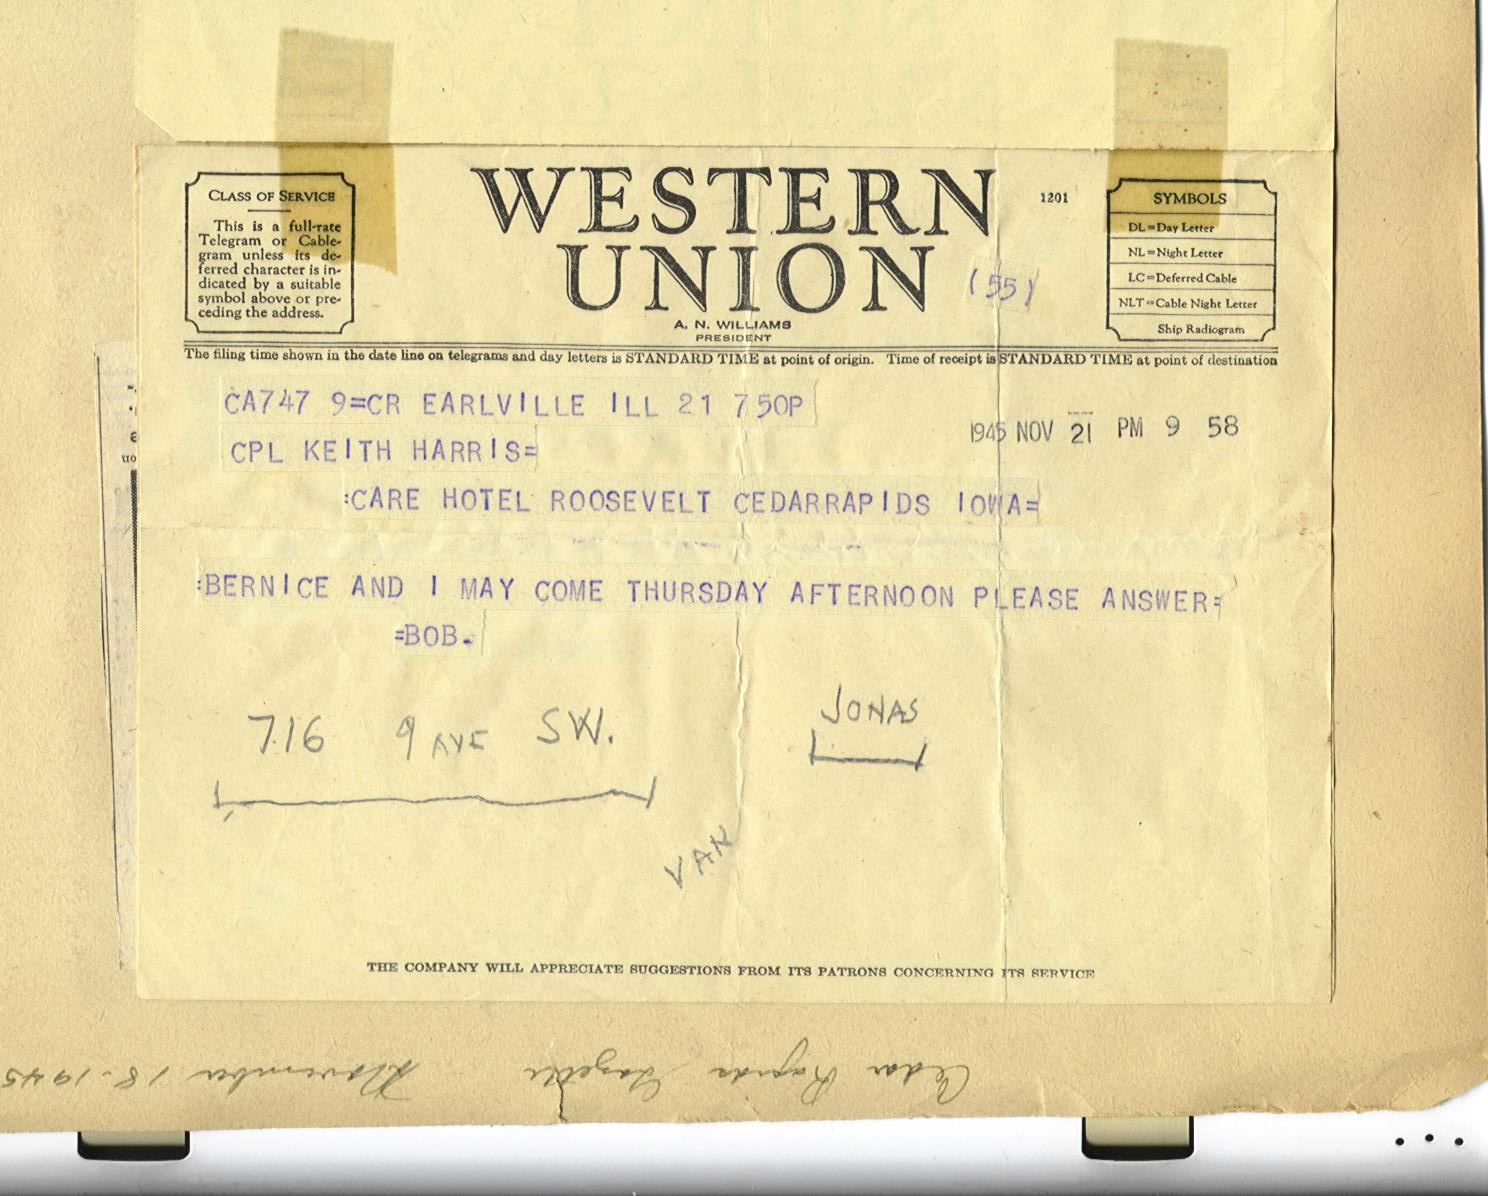 CLASS OF SERVICE
This is a full-rate
Telegram or Cable-
gram unless its de-
ferred character is in-
dicated by a suitable
symbol above or pre-
ceding the address.
WESTERN
UNION
1201
(55)
A. N. WILLIAMS
PRESIDENT
SYMBOLS
DL=Day Letter
NL=Night Letter
LC=Deferred Cable
NLT=Cable Night Letter
Ship Radiogram
The filing time shown in the date line on telegrams and day letters is STANDARD TIME at point of origin. Time of receipt is STANDARD TIME at point of destination
CA747 9=CR EARLVILLE ILL 21 750P
1945 NOV 21 PM 9 58
CPL KEITH HARRIS=
:CARE HOTEL ROOSEVELT CEDARRAPIDS IOWA=
:BERNICE AND I MAY COME THURSDAY AFTERNOON PLEASE ANSWER=
=BOB.
716 9 AVE SW.
JONAS
VAN
THE COMPANY WILL APPRECIATE SUGGESTIONS FROM ITS PATRONS CONCERNING ITS SERVICE
Cedar Rapids Gazette November 18-1945